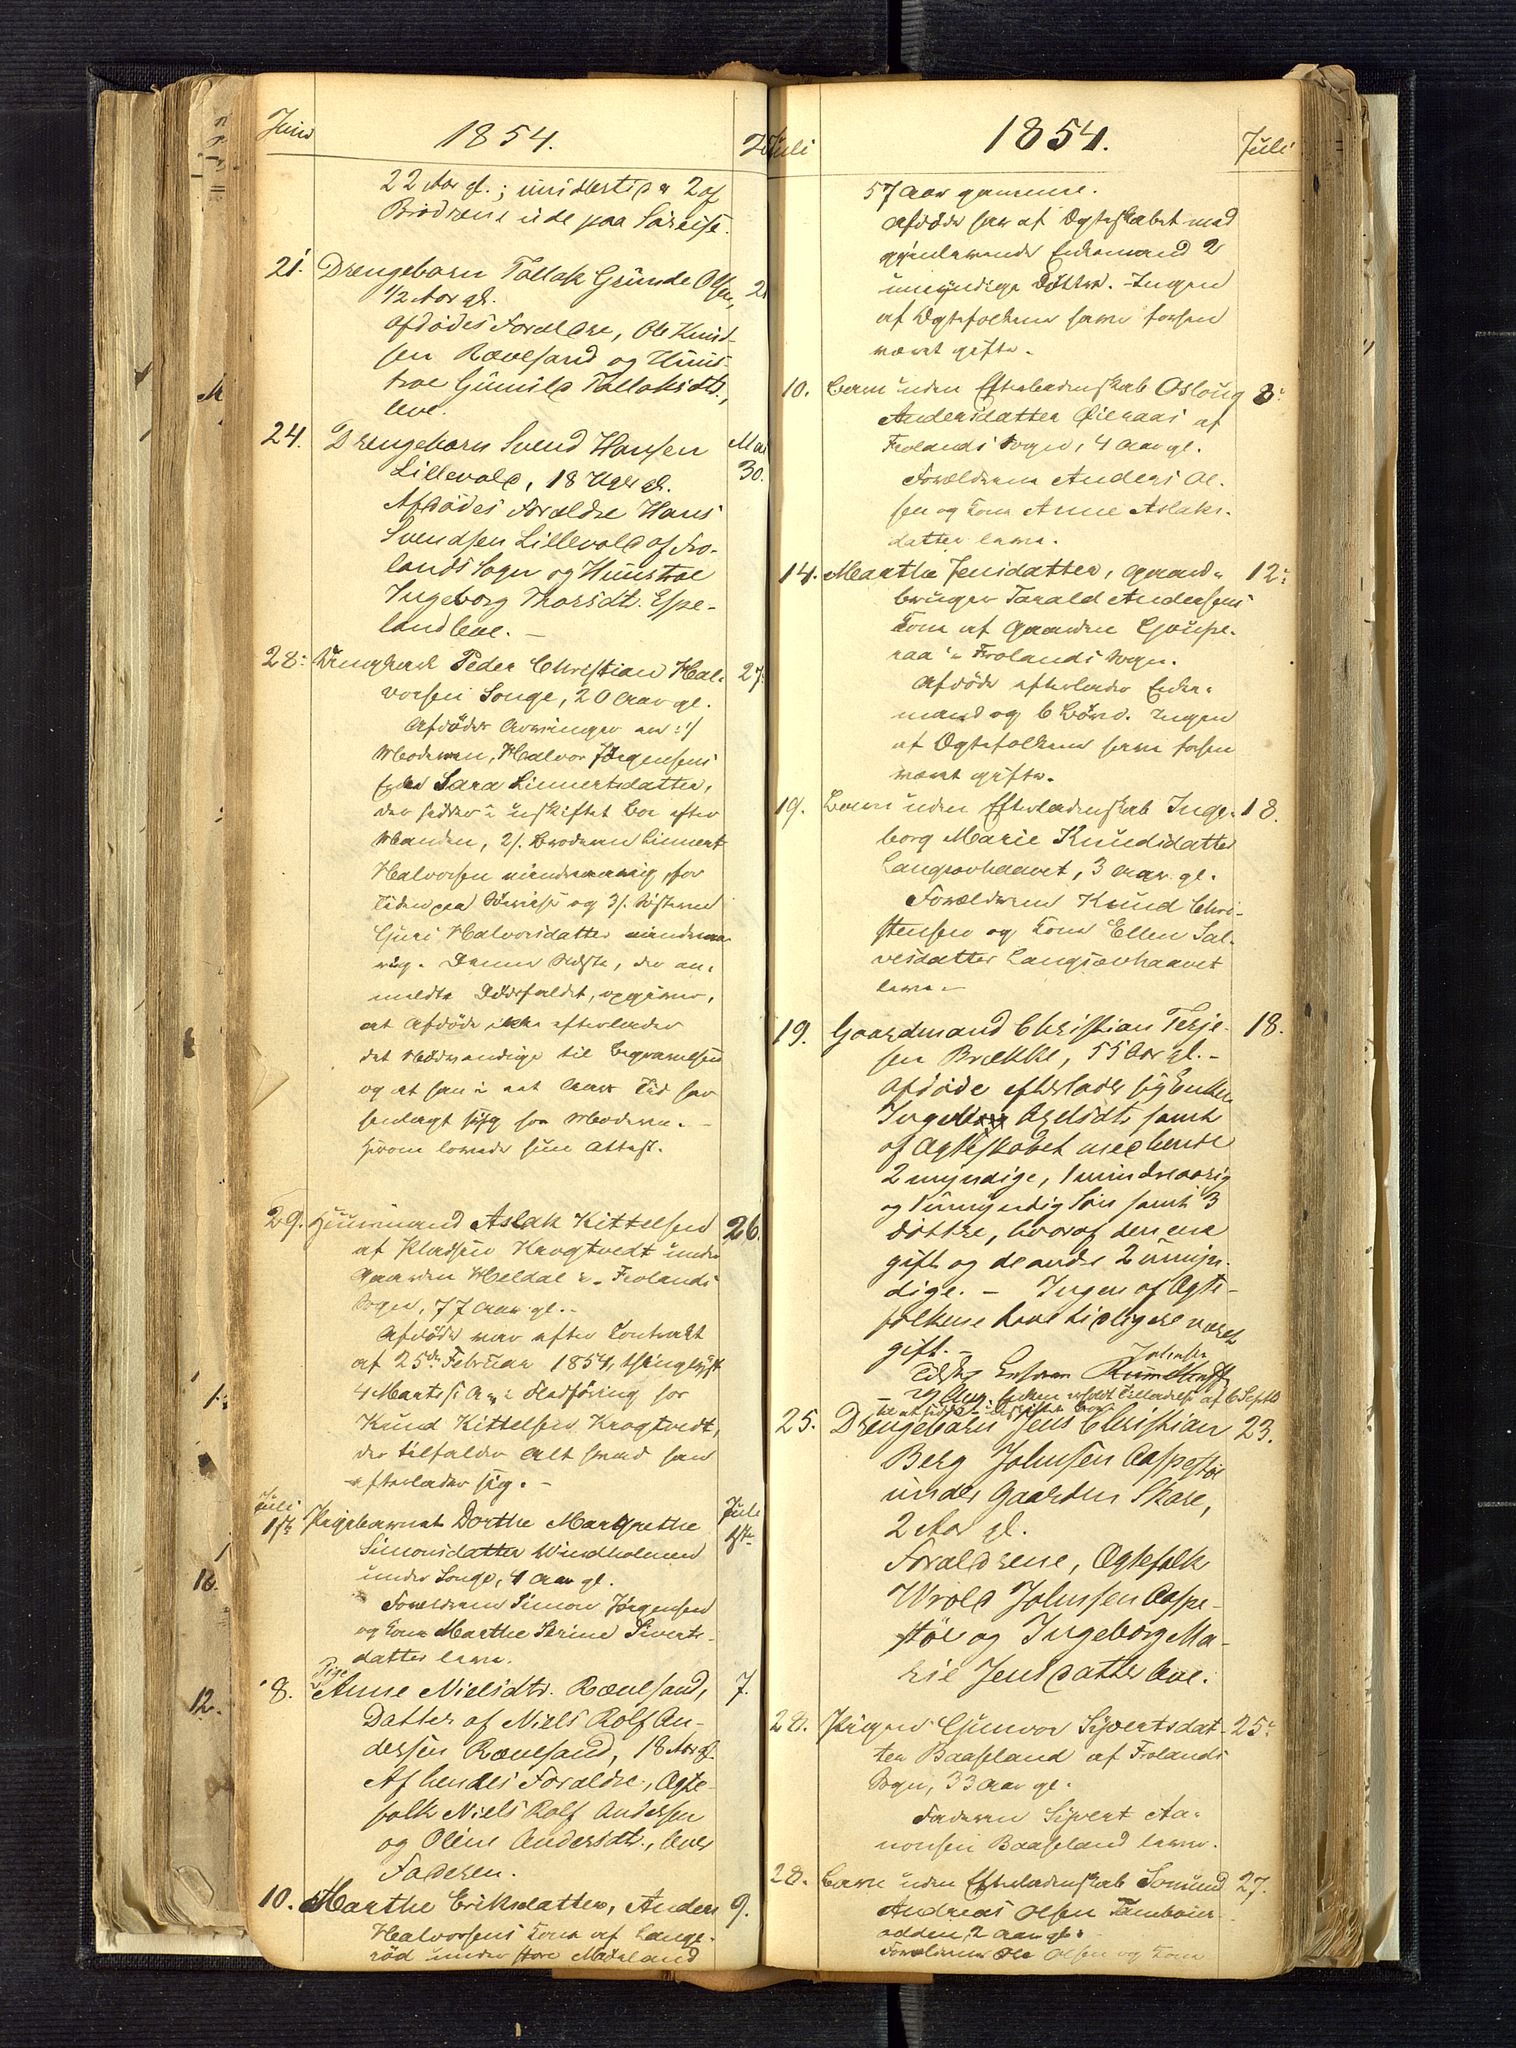 Juni 1854. Juli
22 Aar gl.; imidlertid er 2 af
Brødrene ude paa Søreise.
21. Drengebarn Tallak Gunde Olsen, 21
1/2 Aar gl.
Afdødes Forældre, Ole Knud-
sen Rævesand og Huus-
troe Gunild Tallaksdtr.,
leve.
24. Drengebarn Svend Hansen Mai
Lillevold, 18 Uger gl. 30.
Afdødes Forældre Hans
Svendsen Lillevold af Fro-
lands Sogn og Huustroe
Ingeborg Thorsdtr. Espe-
land leve. —
28. Ungkarl Peder Christian Hal- 27.
vorsen Songe, 20 Aar gl.
Afdødes Arvinger er: 1/
Moderen, Halvor Jørgensens
Enke Sara Linnertsdatter,
der sidder i uskiftet Bo efter
Manden, 2/. Broderen Linnert
Halvorsen mindreaarig, for
Tiden paa Søreise og 3/. Søsteren
Guri Halvorsdatter mindreaa-
rig. Denne Sidste, der an-
meldte Dødsfaldet, opgiver,
at Afdøde ikke efterlader
det Nødvendige til Begravelsen
og at han i et Aars Tid har
henlagt syg hos Moderen. —
Herom lovede hun Attest.
29. Huusmand Aslak Kittelsen 26.
af Pladsen Krogtvedt under
Gaarden Heldal i Frolands
Sogn, 77 Aar gl. —
Afdøde var efter Contract
af 25de Februar 1854, thinglyst
4 Marts s. A. i Fladføring hos
Knud Kittelsen Krogtvedt,
der tilfalder Alt hvad han
efterlader sig. —
Juli Juli
1ste Pigebarnet Dorthe Margrethe 1ste
Simonsdatter Windholmen
under Songe, 1 Aar gl.
Forældrene Simon Jørgensen
og Kone Marthe Serine Siverts-
datter leve.
8. Pige Anne Nielsdtr. Rævesand, 7.
Datter af Niels Rolf An-
dersen Rævesand, 18 Aar gl.
Af hendes Forældre, Ægte-
folk Niels Rolf Andersen
og Oline Andersdtr., lever
Faderen.
10. Marthe Eriksdatter, Anders 9.
Halvorsens Kone af Lange-
rød under store Mæsland
Juli 1854. Juli
57 Aar gammel.
Afdøde har af Ægteskabet med
gjenlevende Enkemand 2
umyndige Døttre. Ingen
af Ægtefolkene have forhen
været gifte.
10. Barn uden Efterladenskab Oslaug 8.
Andersdatter Øieraas af
Frolands Sogn, 4 Aar gl.
Forældrene Anders Ol-
sen og Kone Anne Aslaks-
datter leve.
14. Marthe Jensdatter, Gaard- 12.
bruger Tarald Andersens
Kone af Gaarden Gaupe-
raa i Frolands Sogn.
Afdøde efterlader Enke-
mand og 6 Børn. Ingen
af Ægtefolkene have forhen
været gifte.
19. Barn uden Efterladenskab Inge- 18.
borg Marie Knudsdatter
Langsævhaavet, 3 Aar gl.
Forældrene Knud Chri-
stensen og Kone Ellen Sal-
vesdatter Langsævhaavet
leve. —
19. Gaardmand Christian Terje- 18.
sen Brække, 55 Aar gl. —
Afdøde efterlader sig Enken
Ingeborg Axelsdtr samt
af Ægteskabet med hende
2 myndige, 1 mindreaarig
og 1 umyndig Søn samt 3
Døttre, hvoraf den ene
gift og de andre 2 umyn-
dige. — Ingen af Ægte-
folkene have tidligere været
gift. —
25. Drengebarn Jens Christian 23.
Berg Johnsen Aspestøl
under Gaarden Skare,
2 Aar gl.
Forældrene, Ægtefolk
Wrold Johnsen Aspe-
støl og Ingeborg Ma-
rie Jensdatter leve.
28. Pigen Gunvor Syvertsdat- 25.
ter Baaseland af Frolands
Sogn, 33 Aar gl.
Faderen Syvert Aa-
nonsen Baaseland lever.
28. Barn uden Efterladenskab Somund 27.
Andreas Olsen
odden, 2 Aar gl.
Forældrene Ole Olsen og Kone